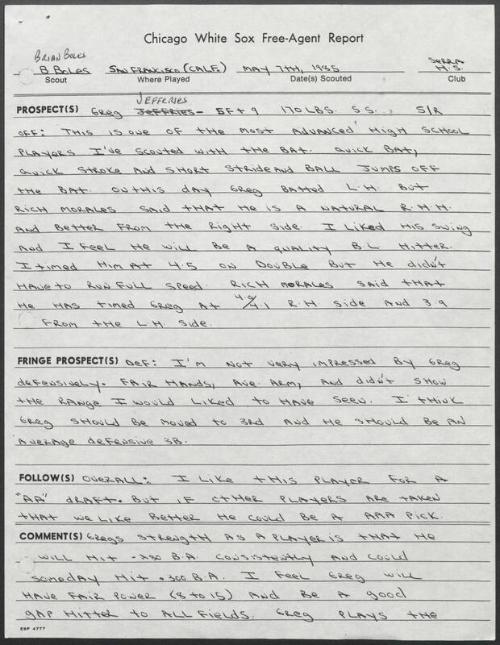 Chicago White Sox Free-Agent Report
BRIAN BOLES
B. BOLES SAN FRANCISCO (CALF.) MAY 7TH, 1985 SERRA H.S.
Scout Where Played Date(s) Scouted Club
JEFFERIES
PROSPECT(S) Greg JEFFRIES- 5FT 9 170 LBS. S.S., S/R
OFF: THIS IS ONE OF THE MOST ADVANCED HIGH SCHOOL
PLAYERS I'VE SCOUTED WITH THE BAT. QUICK BAT,
QUICK STROKE AND SHORT STRIDE AND BALL JUMPS OFF
THE BAT. ON THIS DAY GREG BATTED L.H. BUT
RICH MORALES SAID THAT HE IS A NATURAL R.H.H.
AND BETTER FROM THE RIGHT SIDE. I LIKED HIS SWING
AND I FEEL HE WILL BE A QUALITY B.L. HITTER.
I TIMED HIM AT 4.5 ON DOUBLE BUT HE DIDN'T
HAVE TO RUN FULL SPEED. RICH MORALES SAID THAT
HE HAS TIMED GREG AT 4.0/4.1 R.H SIDE AND 3.9
FROM THE L.H. SIDE.
FRINGE PROSPECT(S) DEF: I'M NOT VERY IMPRESSED BY GREG
DEFENSIVELY. FAIR HANDS, AVE. ARM, AND DIDN'T SHOW
THE RANGE I WOULD LIKED TO HAVE SEEN. I THINK
GREG SHOULD BE MOVED TO 3RD AND HE SHOULD BE AN
AVERAGE DEFENSIVE 3B.
FOLLOW(S) OVERALL: I LIKE THIS PLAYER FOR A
"AA" DRAFT. BUT IF OTHER PLAYERS ARE TAKEN
THAT WE LIKE BETTER HE COULD BE A AAA PICK.
COMMENT(S) GREGS STRENGTH AS A PLAYER IS THAT HE
WILL HIT B.A. CONSISTENTLY AND COULD
SOMEDAY HIT .300 B.A. I FEEL GREG WILL
HAVE FAIR POWER (8 TO 15) AND BE A GOOD
GAP HITTER TO ALL FIELDS. GREG PLAYS THE